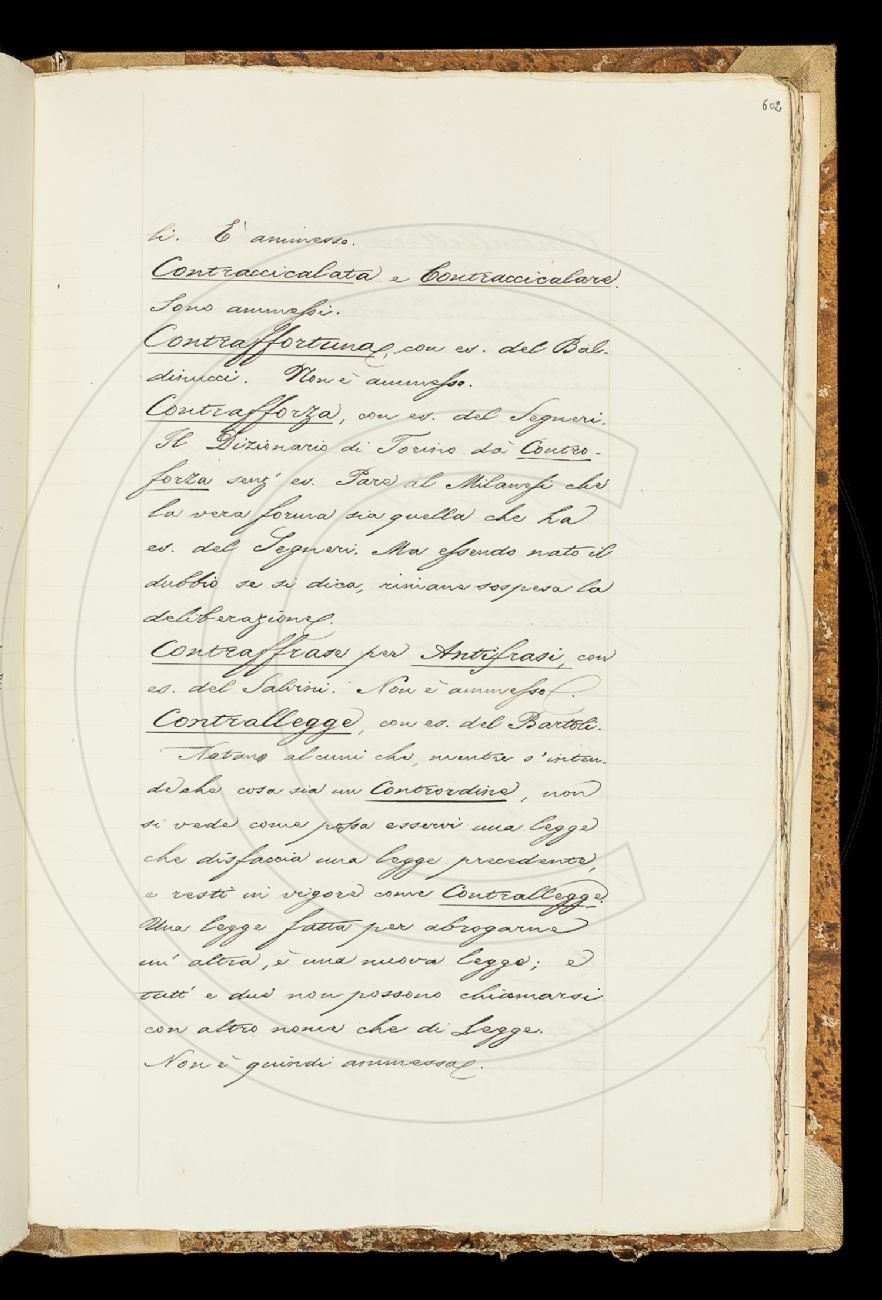 602
li. È ammesso.
Contraccicalata e Contraccicalare.
Sono ammessi.
Contraffortuna, con es. del Bal-
dinucci. Non è ammesso.
Contrafforza, con es. del Segneri.
Il Dizionario di Torino dà Contro-
forza senz' es. Pare al Milanesi che
la vera forma sia quella che ha
es. del Segneri. Ma essendo nato il
dubbio se si dica, rimane sospesa la
deliberazione.
Contraffrase per Antifrasi, con
es. del Salvini. Non è ammesso.
Contrallegge, con es. del Bartoli.
Notano alcuni che, mentre s'inten-
de che cosa sia un Contrordine, non
si vede come possa esservi una legge
che disfaccia una legge precedente,
e resti in vigore come Contrallegge.
Una legge fatta per abrogarne
un' altra, è una nuova legge; e
tutt' e due non possono chiamarsi
con altro nome che di Legge.
Non è quindi ammessa.